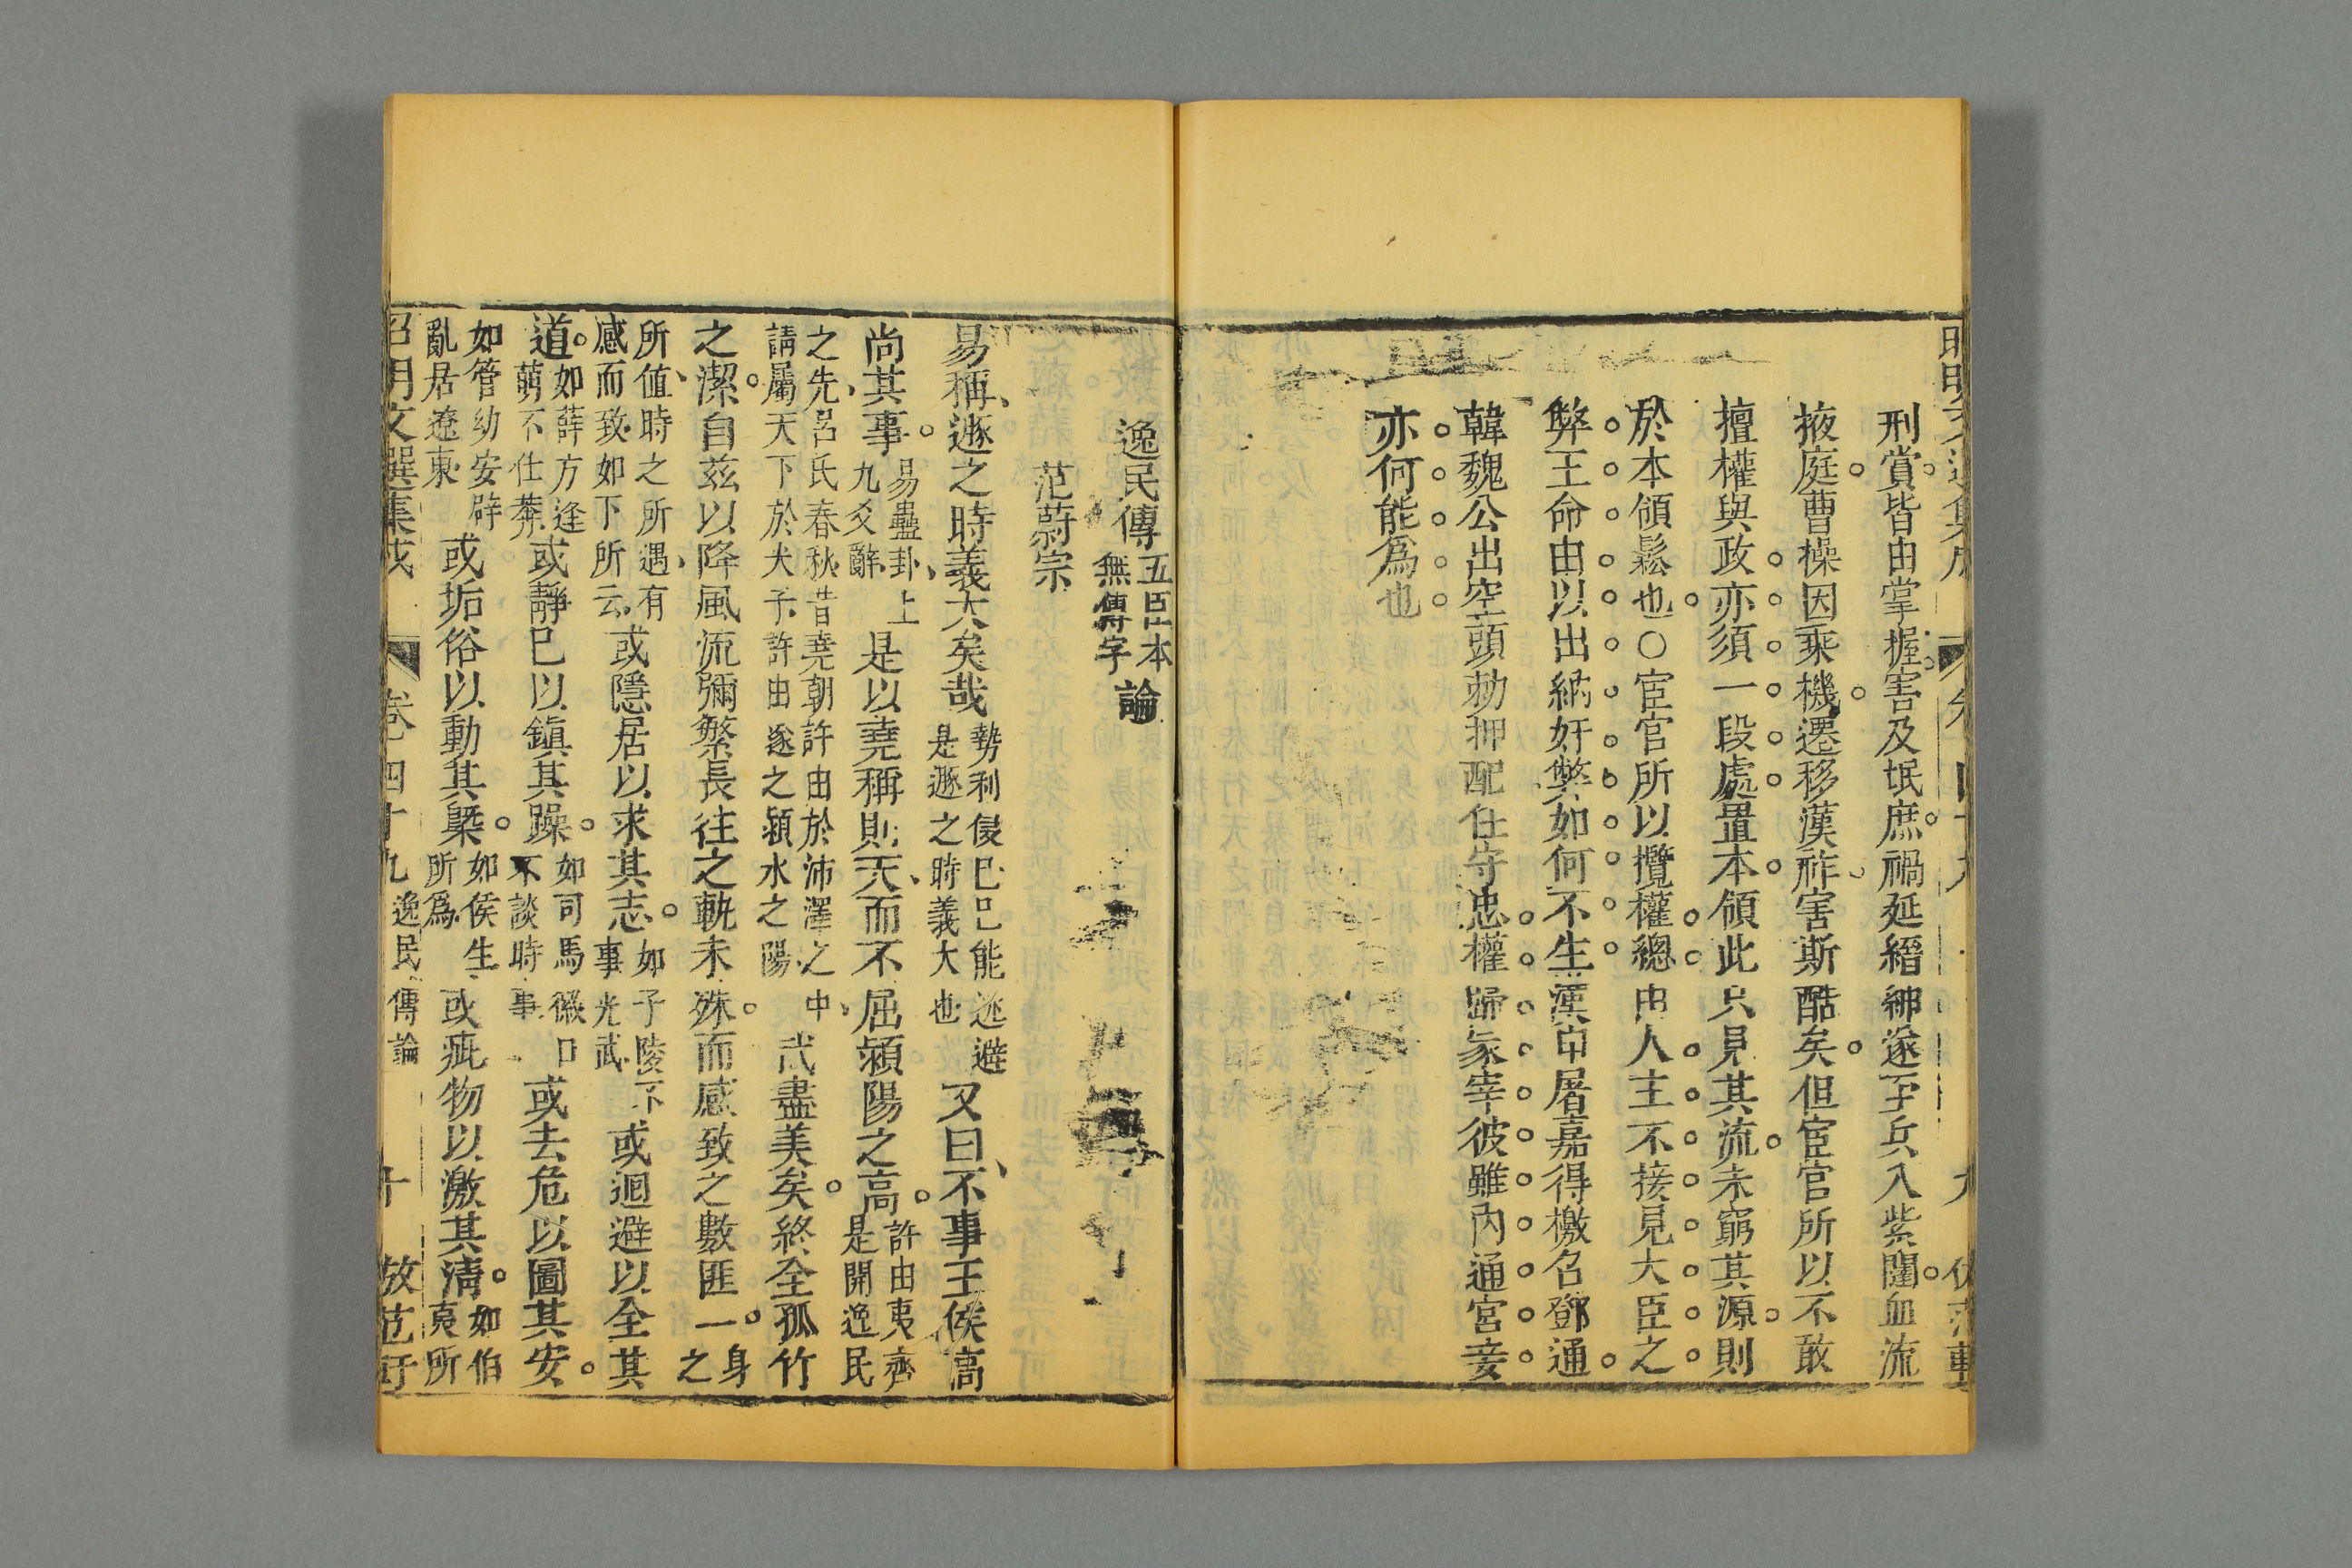 刑賞皆由掌握害及氓庶禍延縉紳遂至兵入紫闥血流
掖庭曹操因乘機遷移漢祚害斯酷矣但宦官所以不敢
擅權與政亦須一段處置本領此只見其流未窮其源則
於本領鬆也○宦官所以攬權總由人主不接見大臣之
弊王命由以出納奸弊如何不生漢申屠嘉得檄名鄧通
韓魏公出空頭勅押配任守忠權歸冢宰彼雖內通宮妾
亦何能爲也
逸民傳五臣本無傳字論
范蔚宗
易稱遯之時義大矣哉勢利侵巳巳能逃避是遯之時義大也又曰不事王侯高
尚其事易蠱卦上九爻辭是以堯稱則天而不屈潁陽之高許由夷齊是開逸民
之先呂氏春秋昔堯朝許由於沛澤之中請屬天下於夫子許由遂之潁水之陽武盡美矣終全孤竹
之潔自茲以降風流彌繁長往之軌未殊而感致之數匪一身之
所值時之所遇有感而致如下所云或隱居以求其志如子陵下事光武或迴避以全其
道如薛方逢萌不仕莽或靜巳以鎮其躁如司馬徽口不談時事或去危以圖其安
如管幼安辟亂居遼東或垢俗以動其槩如侯生所爲或疵物以激其清如伯夷所
昭明文選集成 卷四十九逸民傳論 十 倣范軒